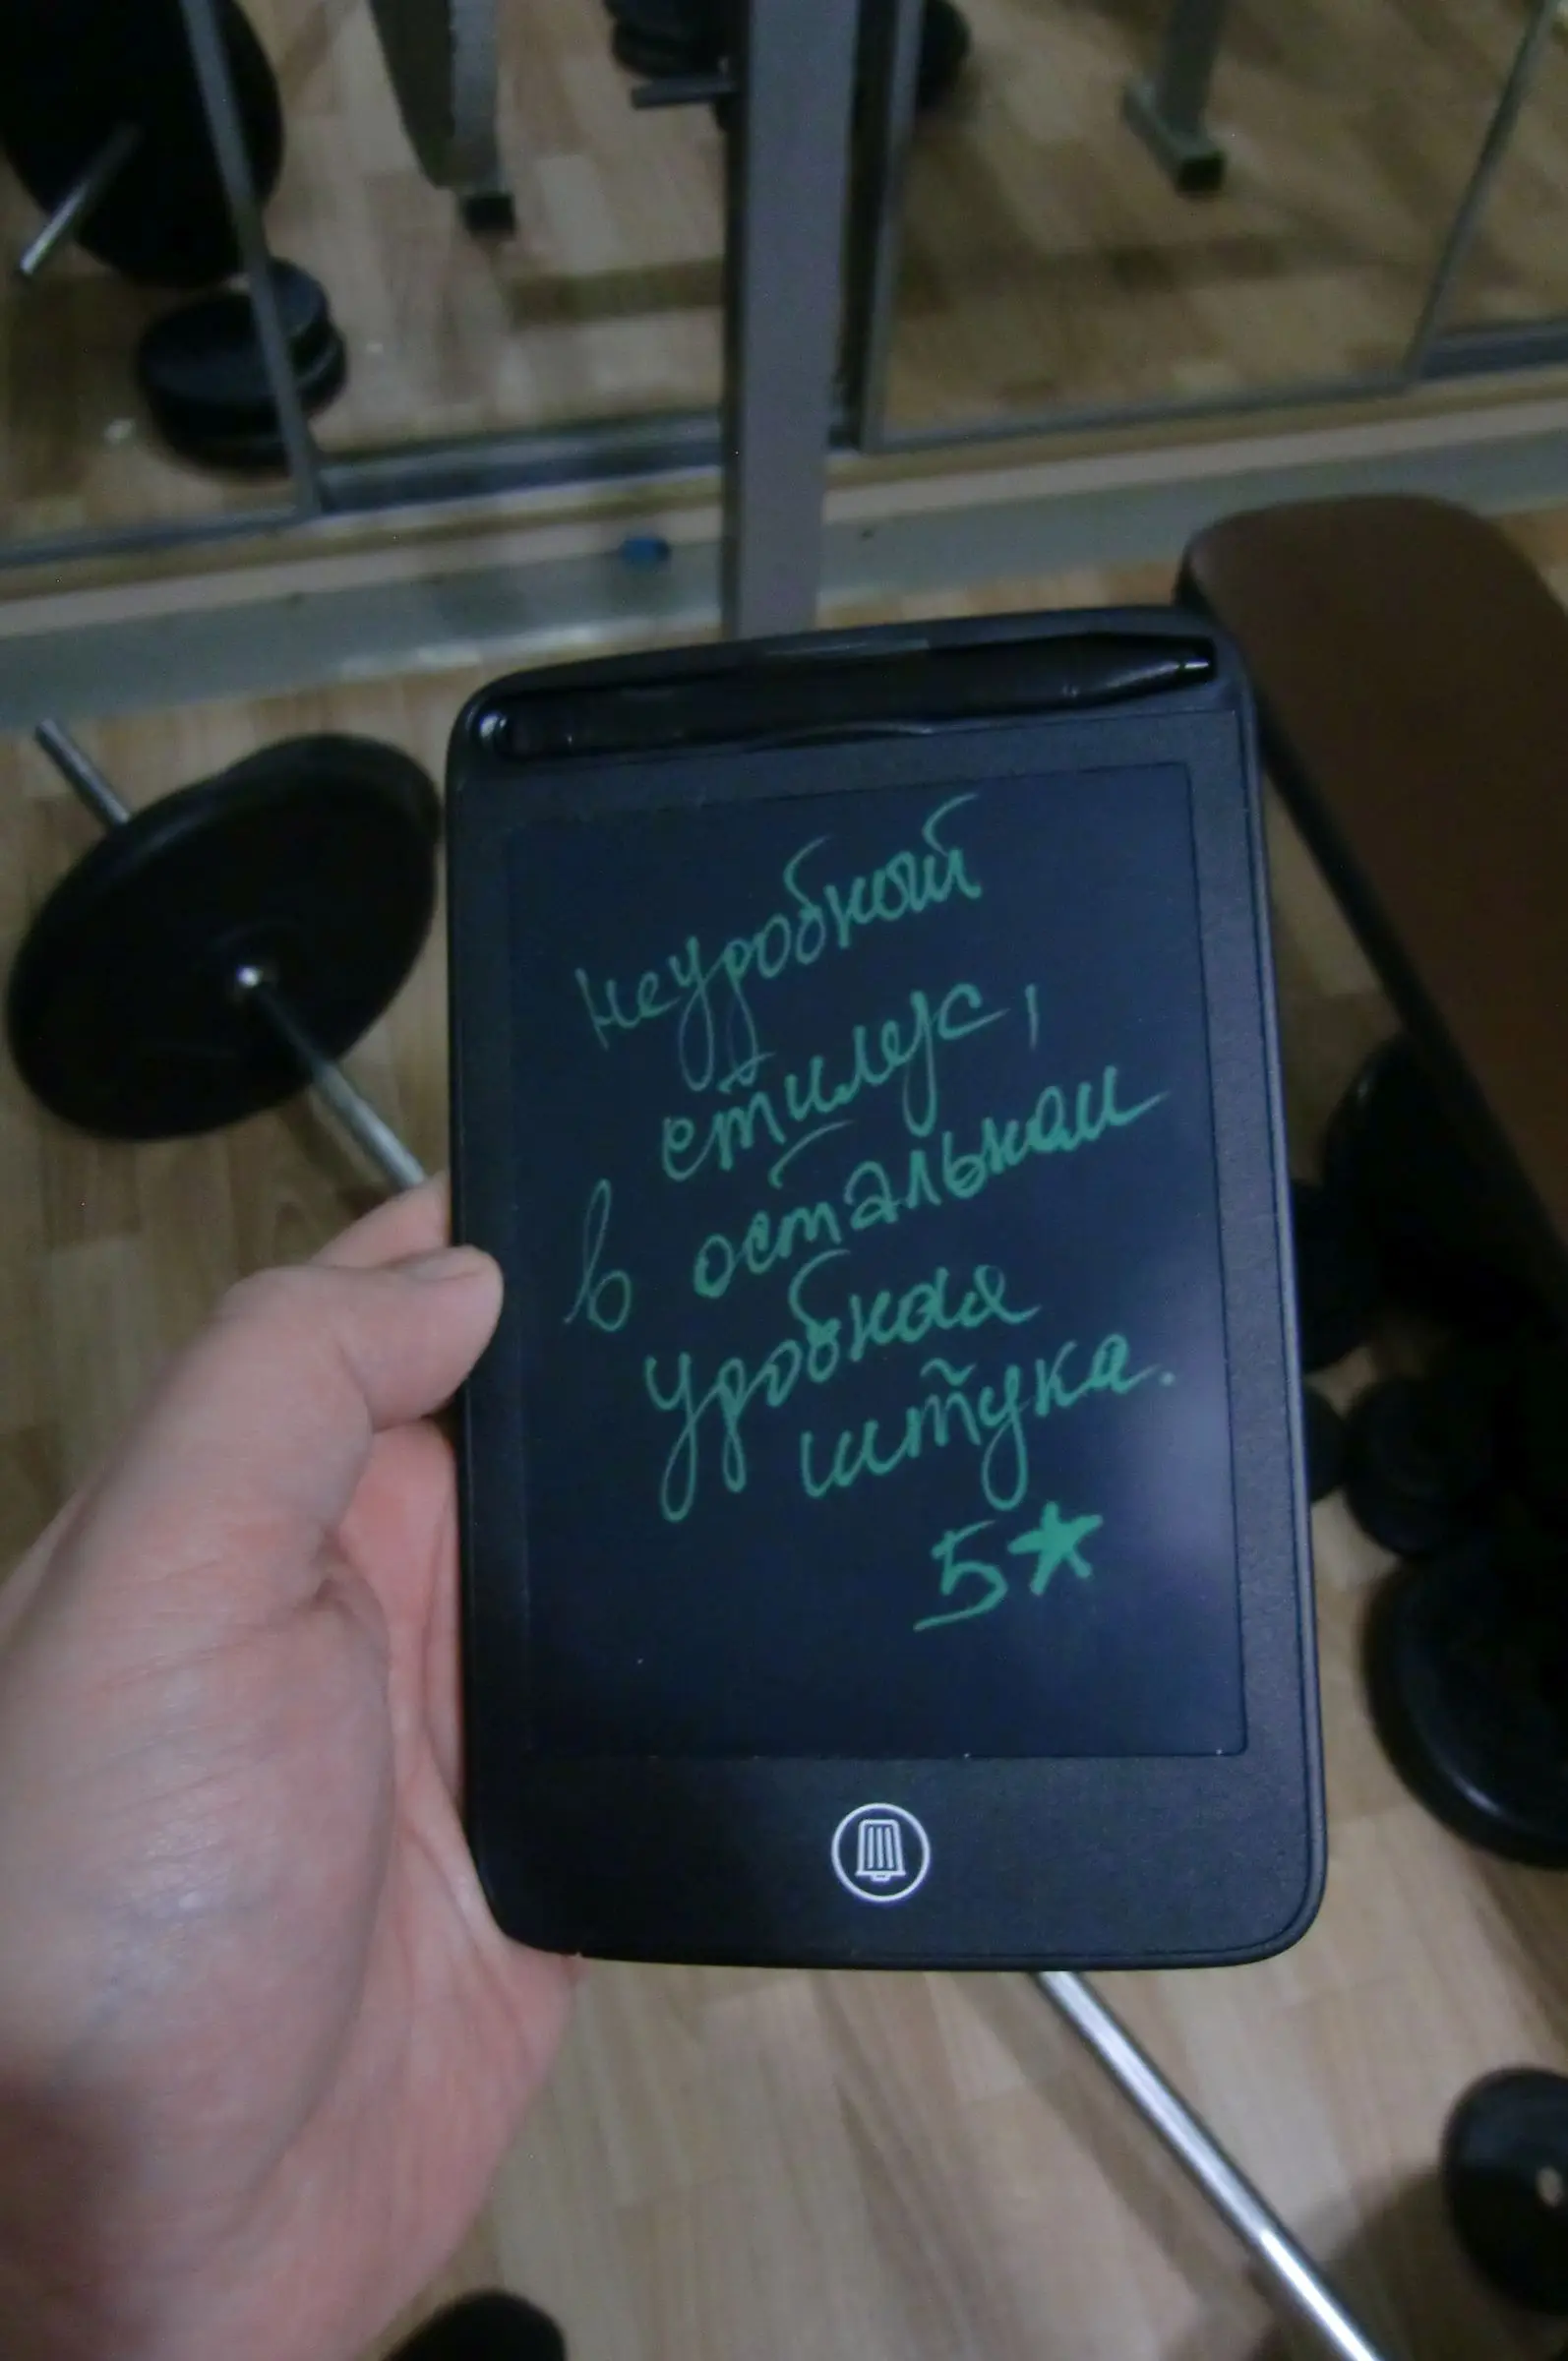 неудобной
стилус,
в остальном
удобная
штука.
5★